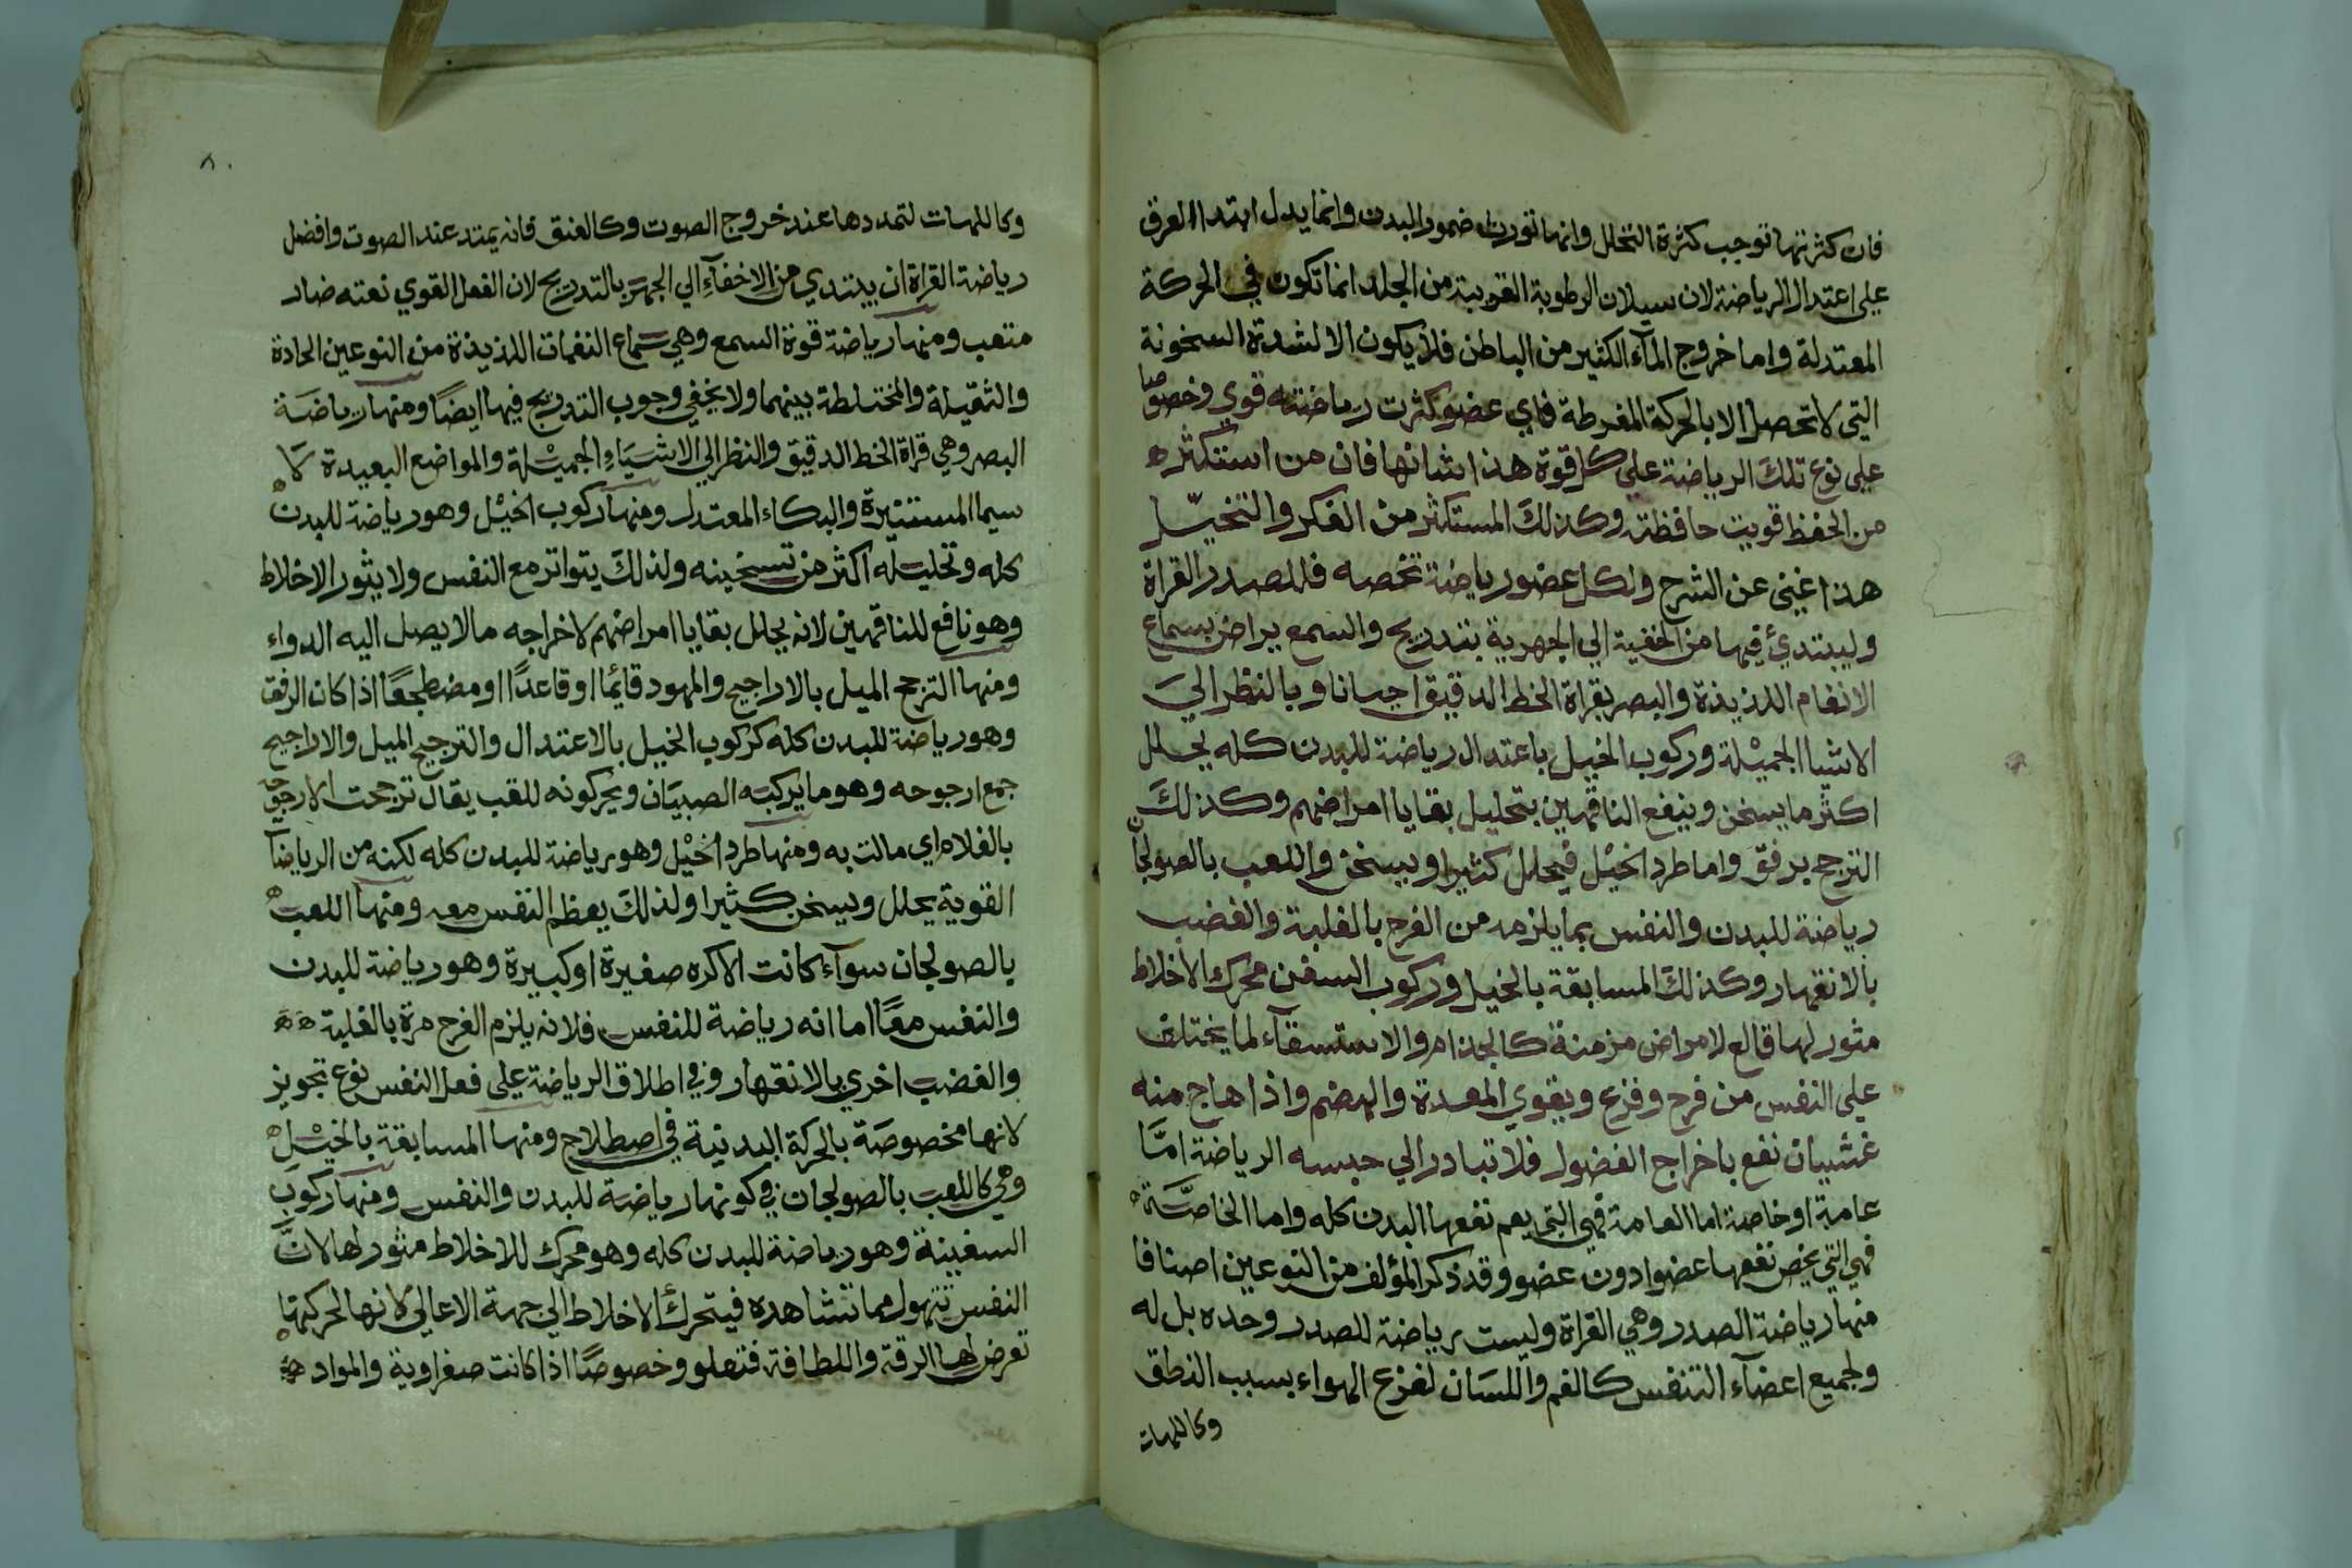 فان كثرتها توجب كثرة التحلل وانها تورث ضمور البدن وانما يدل ابتدا العرق
على اعتدال الرياضة لان سيلان الرطوبة القريبة من الجلد انما تكون في الحركة
المعتدلة واما خروج المآء الكثير من الباطن فلا يكون الا لشدة السخونة
التي لا تحصل الا بالحركة المفرطة فاي عضو كثرت رياضته قوي وخصوصا
على نوع تلك الرياضة على كل قوة هذا شانها فان من استكثر
من الحفظ قويت حافظته وكذلك المستكثر من الفكر والتخيل
هذا غني عن الشرح ولكل عضو رياضة تخصه فللصدر القراة
وليبتدئ فيها من الخفية الي الجهرية بتدريج والسمع يراض بسماع
الانغام اللذيذة والبصر بقراة الخط الدقيق احيانا وبالنظر الي
الاشيا الجميلة وركوب الخيل باعتدال رياضة للبدن كله يحلل
اكثر ما يسخن وينفع الناقهين بتحليل بقايا امراضهم وكذلك
الترجح برفق واما طرد الخيل فيحلل كثيرا ويسخن واللعب بالصولجان
رياضة للبدن والنفس بما يلزمه من الفرح بالغلبة والغضب
بالانقهار وكذلك المسابقة بالخيل وركوب السفن محرك الاخلاط
مثور لها قالع لامراض مزمنة كالجذام والاستسقآء لما يختلف
على النفس من فرح وفزع ويقوي المعدة والهضم واذا هاج منه
غشيان نفع باخراج الفضول فلا تبادر الي حبسه الرياضة امّا
عامة او خاصة اما العامة فهي التي يعم نفعها البدن كله واما الخاصّة
فهي التي يخص نفعها عضوا دون عضو وقد ذكر المؤلف من النوعين اصنافا
منها رياضة الصدر وهي القراة وليست رياضة للصدر وحده بل له
ولجميع اعضآء التنفس كالفم واللسان لقرع الهواء بسبب النطق
وكاللهات
٨٠
وكاللهات لتمددها عند خروج الصوت وكالعنق فانه يمتد عند الصوت وافضل
رياضة القراة ان يبتدي من الاخفآء الي الجهر بالتدريج لان الفعل القوي نعته ضار
متعب ومنها رياضة قوة السمع وهي سماع النغمات اللذيذة من النوعين الحادة
والثقيلة والمختلطة بينهما ولا يخفي وجوب التدريج فيها ايضًا ومنها رياضة
البصر وهي قراة الخط الدقيق والنظر الي الاشياء الجميلة والمواضع البعيدة لا
سيما المستنيرة والبكاء المعتدل ومنها ركوب الخيل وهو رياضة للبدن
كله وتحليله اكثر من تسخينه ولذلك يتواتر مع النفس ولا يثور الاخلاط
وهو نافع للناقهين لانه يحلل بقايا امراضهم لاخراجه ما لا يصل اليه الدواء
ومنها الترجح الميل بالاراجيح والمهود قائما او قاعدًا او مضطجعًا اذا كان الرفق
وهو رياضة للبدن كله كركوب الخيل بالاعتدال والترجيح الميل والاراجيح
جمع ارجوحه وهو ما يركبه الصبيان ويحركونه للعب يقال ترجحت الارجوحه
بالغلام اي مالت به ومنها طرد الخيل وهو رياضة للبدن كله لكنه من الرياضات
القوية يحلل ويسخن كثيرا ولذلك يعظم النفس معه ومنها اللعب
بالصولجان سوآء كانت الاكره صغيرة او كبيرة وهو رياضة للبدن
والنفس معًا اما انه رياضة للنفس فلانه يلزم الفرح مرة بالغلبة
والغضب اخري بالانقهار وفي اطلاق الرياضة على فعل النفس نوع تجويز
لانها مخصوصة بالحركة البدنية في اصطلاح ومنها المسابقة بالخيل
وهي كاللعب بالصولجان في كونها رياضة للبدن والنفس ومنها ركوب
السفينة وهو رياضة للبدن كله وهو محرك للاخلاط مثور لها لانّ
النفس تتهول مما تشاهده فيتحرك الاخلاط الي جهة الاعالي لانها لحركتها
تعرض لها الرقة واللطافة فتعلو وخصوصًا اذا كانت صفراوية والمواد